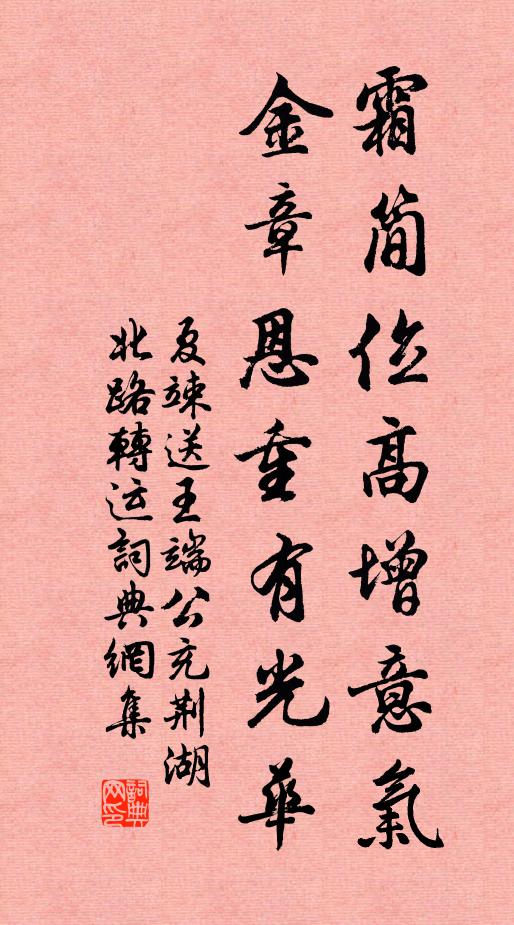 霜简位高增意氣
金章恩重有光華
夏竦送王端公充荆湖
北路轉运詞典網集
詞典网印